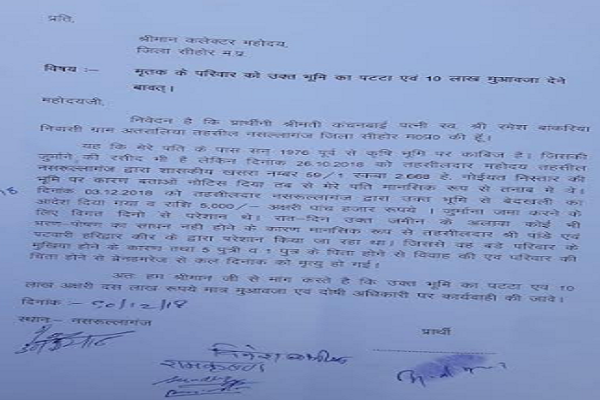 प्रति,
श्रीमान कलेक्टर महोदय,
जिला सीहोर म.प्र.
विषय :- मृतक के परिवार को उक्त भूमि का पटटा एवं 10 लाख मुआवजा देने
बावत् ।
महोदयजी,
निवेदन है कि प्रार्थीनी श्रीमती कंचनबाई पत्नी स्व. श्री रमेश बाकरिया
निवासी ग्राम अतरालिया तहसील नसरूल्लागंज जिला सीहोर म०प्र० की हूँ।
यह कि मेरे पति के पास सन् 1976 पूर्व से कृषि भूमि पर काबिज है। जिसकी
जुर्माने की रसीद भी है लेकिन दिनांक 26.10.2018 को तहसीलदार महोदय तहसील
नसरूल्लागंज द्वारा शासकीय खसरा नम्बर 59/1 रकबा 2.668 हे. नोईयत निस्तार की
भूमि पर कारण बताओ नोटिस दिया तब से मेरे पति मानसिक रूप से तनाव में थे।
दिनांक 03.12.2018 को तहसीलदार नसरूल्लागंज द्वारा उक्त भूमि से बेदखली का
आदेश दिया गया व राशि 5,000/- अक्षरी पांच हजार रूपये । जुर्माना जमा करने के
लिए विगत दिनो से परेशान थे। रात-दिन उक्त जमीन के अलावा कोई भी
भरण-पोषण का साधन नही होने के कारण मानसिक रूप से तहसीलदार श्री पांडे एवं
पटवारी हरिद्वार कीर के द्वारा प्रेशान किया जा रहा था। जिससे वह बडे परिवार के
मुखिया होने के कारण तथा 5 पुत्री व 1 पुत्र के पिता होने से विवाह की एवं परिवार की
चिंता होने से ब्रेनहमरेज से कल दिनांक को मृत्यु हो गई।
अतः हम श्रीमान जी से मांग करते है कि उक्त भूमि का पटटा एव 10
लाख अक्षरी दस लाख रूपये मात्र मुआवजा एवं दोषी अधिकारी पर कार्यवाही की जावे।
दिनांक :- 30/12/18
स्थान:- नसरूल्लागंज
प्रार्थी